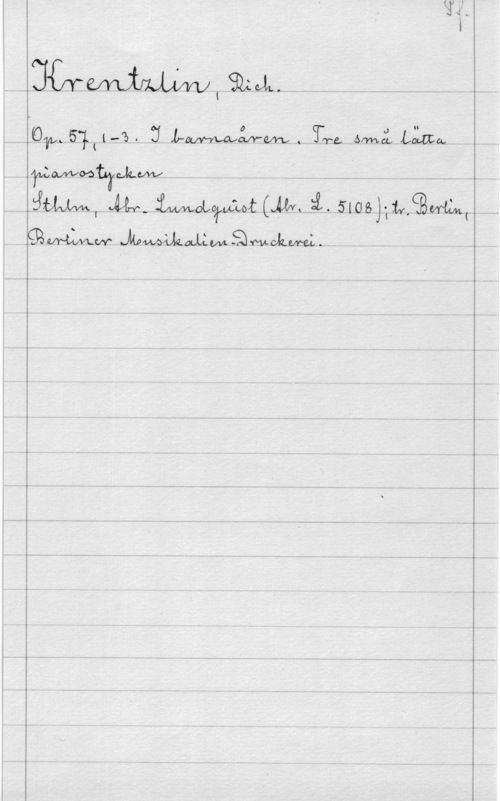 Pf.
Krentzlin, Rich.
Op. 57, 1-3. I barnaåren. Tre små lätta
pianostycken
Sthlm, Abr. Lundquist (Abr. L. 5108); tr. Berlin,
Berliner Musikalien-Druckerei.